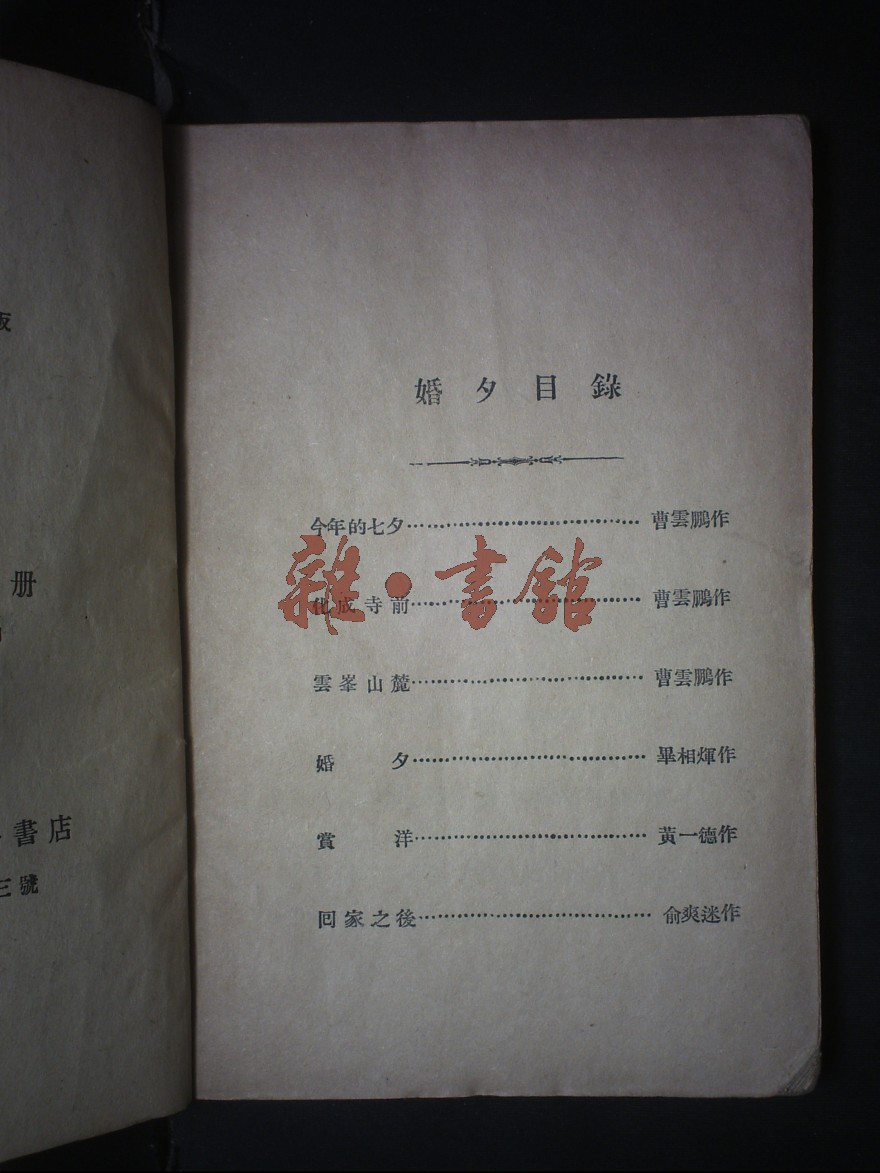 婚夕目錄
今年的七夕……………………………曹雲鵬作
化成寺前……………………………曹雲鵬作
雲峯山麓……………………………曹雲鵬作
婚夕……………………………畢相煇作
賞洋……………………………黃一德作
回家之後……………………………俞爽迷作
雜·書館
册
書店
三號